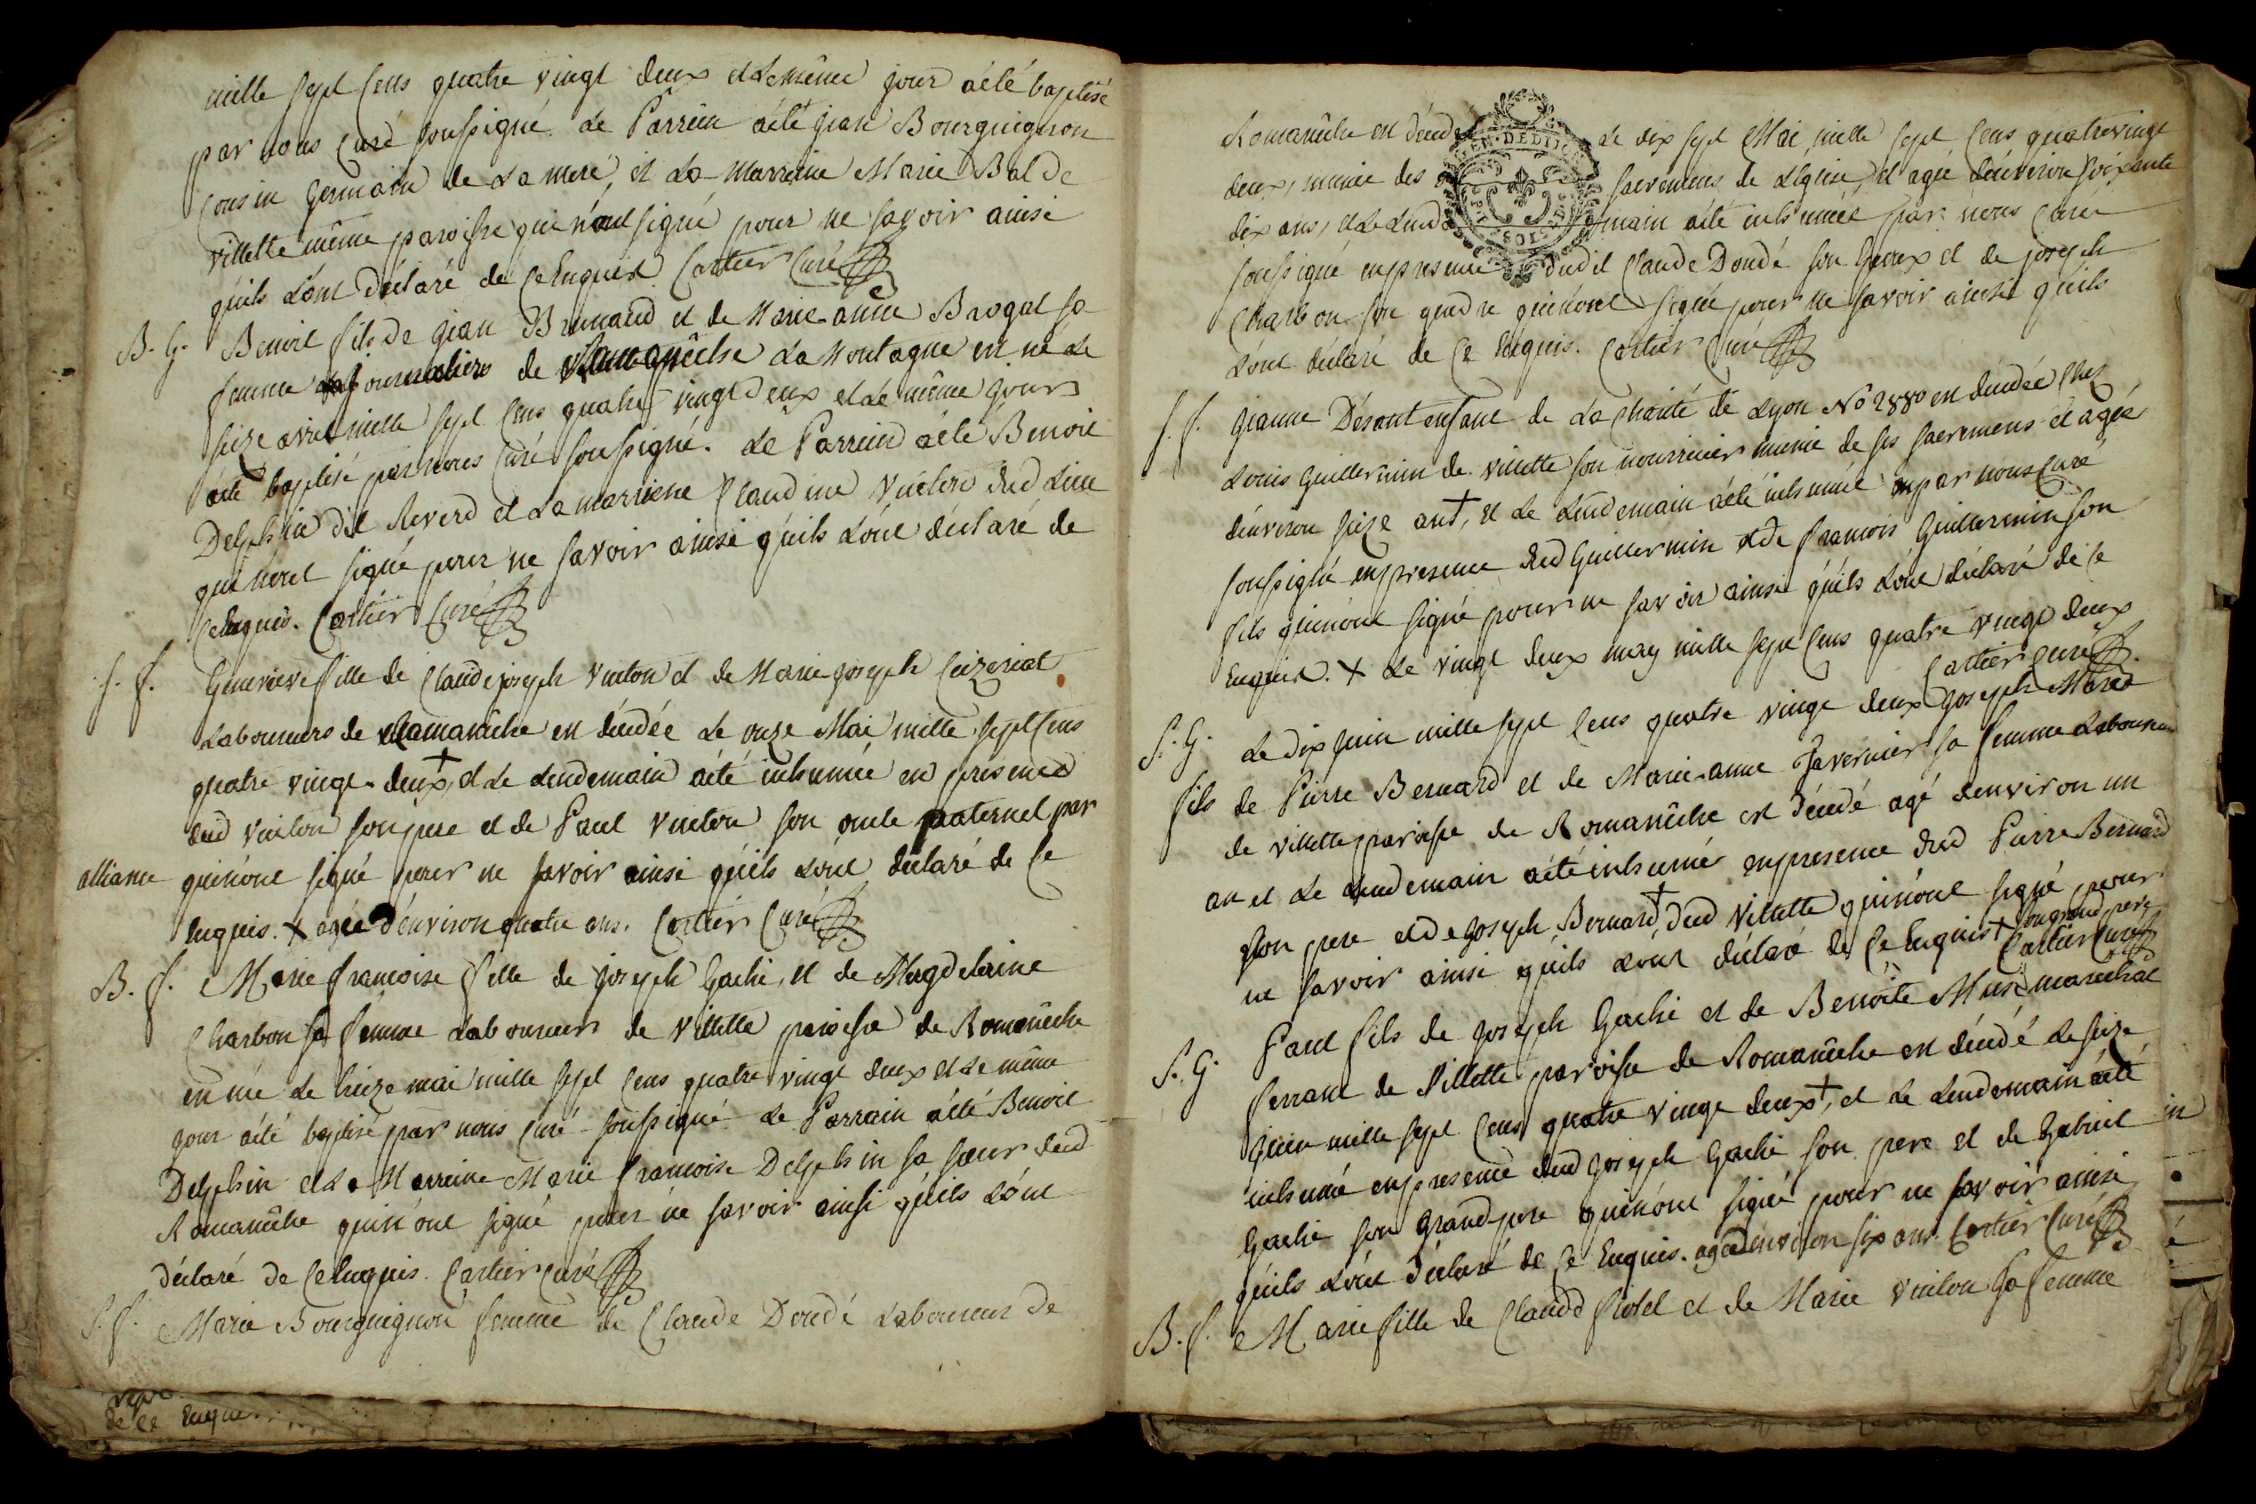 mille sept cens quatre vingt deux et le même jour a été baptisé
par nous curé soussigné. Le Parrein a été Jean Bourguignon
cousin germain de la mere, et la marreine Marie Bal de
villette même paroisse qui n'ont signé pour ne savoir ainsi
qu'ils l'ont déclaré de ce enquis. Cartier curé
B. G. Benoit fils de Jean Brunaud et de Marie anne Brogat sa
femme journaliers de Romanêche la Montagne est né le
seize avril mille sept cens quatre vingt deux et le même jour
a été baptisé par nous curé soussigné. Le Parrein a été Benoit
Delphin dit Reverd et la marreine Claudine Vuiton dud lieu
qui n'ont signé pour ne savoir ainsi qu'ils l'ont déclaré de
ce enquis. Cartier curé
S. f. Genevieve fille de Claude joseph Vuiton et de Marie joseph Cuzeriat
laboureurs de Romanêche est décédée le onze Mai mille sept cens
quatre vingt deux, † et le lendemain a été inhumée en presence
dud Vuiton son pere et de Paul Vuiton son oncle paternel par
alliance qui n'ont signé pour ne savoir ainsi qu'ils l'ont déclaré de ce
enquis. † agée d'environ quatre ans. Cartier curé
B. f. Marie francoise fille de joseph Gachi, et de Magdelaine
Charbon sa femme laboureurs de Villette paroisse de Romanêche
est née le treize mai mille sept cens quatre vingt deux et le même
jour a été baptisé par nous curé soussigné Le Parrain a été Benoit
Delphin et la Marreine Marie francoise Delphin sa sœur dud
Romanêche qui n'ont signé pour ne savoir ainsi qu'ils l'ont
déclaré de ce enquis. Cartier curé
S. f. Marie Bourguignon femme de Claude Dondé laboureur de
de ce enquis
Romanêche est décédée le dix sept Mai mille sept cens quatre vingt
deux, munie des sacremens de L'église, et agée d'environ soixante
dix ans, et le lendemain a été inhumée par nous curé
soussigné en presence dudit Claude Dondé son Epoux et de joseph
Charbon son gendre qui n'ont signé pour ne savoir ainsi qu'ils
l'ont déclaré de ce enquis. Cartier curé
S. f. Jeanne Désant enfant de la charité de Lyon No 2880 est décédée chez
Louis Guillermin de villette son nourricier munie de ses sacremens et agée
d'environ seize ans †, et le lendemain a été inhumée par nous curé
soussigné en presence dud Guillermin et de francois Guillermin son
fils qui n'ont signé pour ne savoir ainsi qu'ils l'ont déclaré de ce
enquis. † Le vingt deux may mille sept cens quatre vingt deux
Cartier curé
S. G. Le dix juin mille sept cens quatre vingt deux joseph Marie
fils de Pierre Bernard et de Marie anne Favernier sa femme laboureurs
de villette paroisse de Romanêche est décédé agé d'environ un
an et le lendemain a été inhumé en presence dud Pierre Bernard
son pere et de joseph Bernard †, dud Villette qui n'ont signé pour
ne savoir ainsi qu'ils l'ont déclaré de ce enquis † son grand pere
Cartier curé
S. G. Paul fils de joseph Gachi et de Benoite Muse marechal
ferrant de Villette paroisse de Romanêche est décédé le seize
juin mille sept cens quatre vingt deux †, et le lendemain a été
inhumé en presence dud joseph Gachi son pere et de Gabriel
Gachi son grand pere qui n'ont signé pour ne savoir ainsi
qu'ils l'ont déclaré de ce enquis. agé d'environ six ans. Cartier curé
B. f. Marie fille de Claude flotel et de Marie Vuiton sa femme